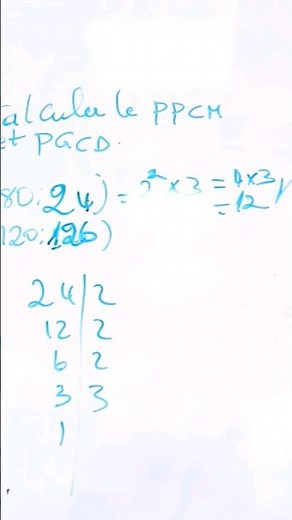 Calculer le PPCM
et PGCD.
80;24) = 2² × 3 = 4×3
= 12
120;126)
24 | 2
12 | 2
6 | 2
3 | 3
1 |